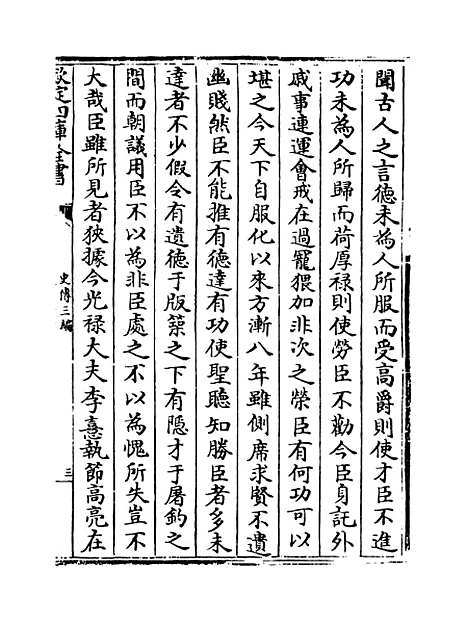 聞古人之言德未為人所服而受高爵則使才臣不進
功未為人所歸而荷厚禄則使勞臣不勸今臣身託外
戚事連運會戒在過寵猥加非次之榮臣有何功可以
堪之今天下自服化以來方漸八年雖側席求賢不遺
幽賤然臣不能推有徳達有功使聖聽知勝臣者多未
達者不少假令有遺徳于版築之下有隠才于屠釣之
間而朝議用臣不以為非臣處之不以為愧所失豈不
大哉臣雖所見者狹據今光禄大夫李憙執節高亮在
欽定四庫全書
史傳三編
三